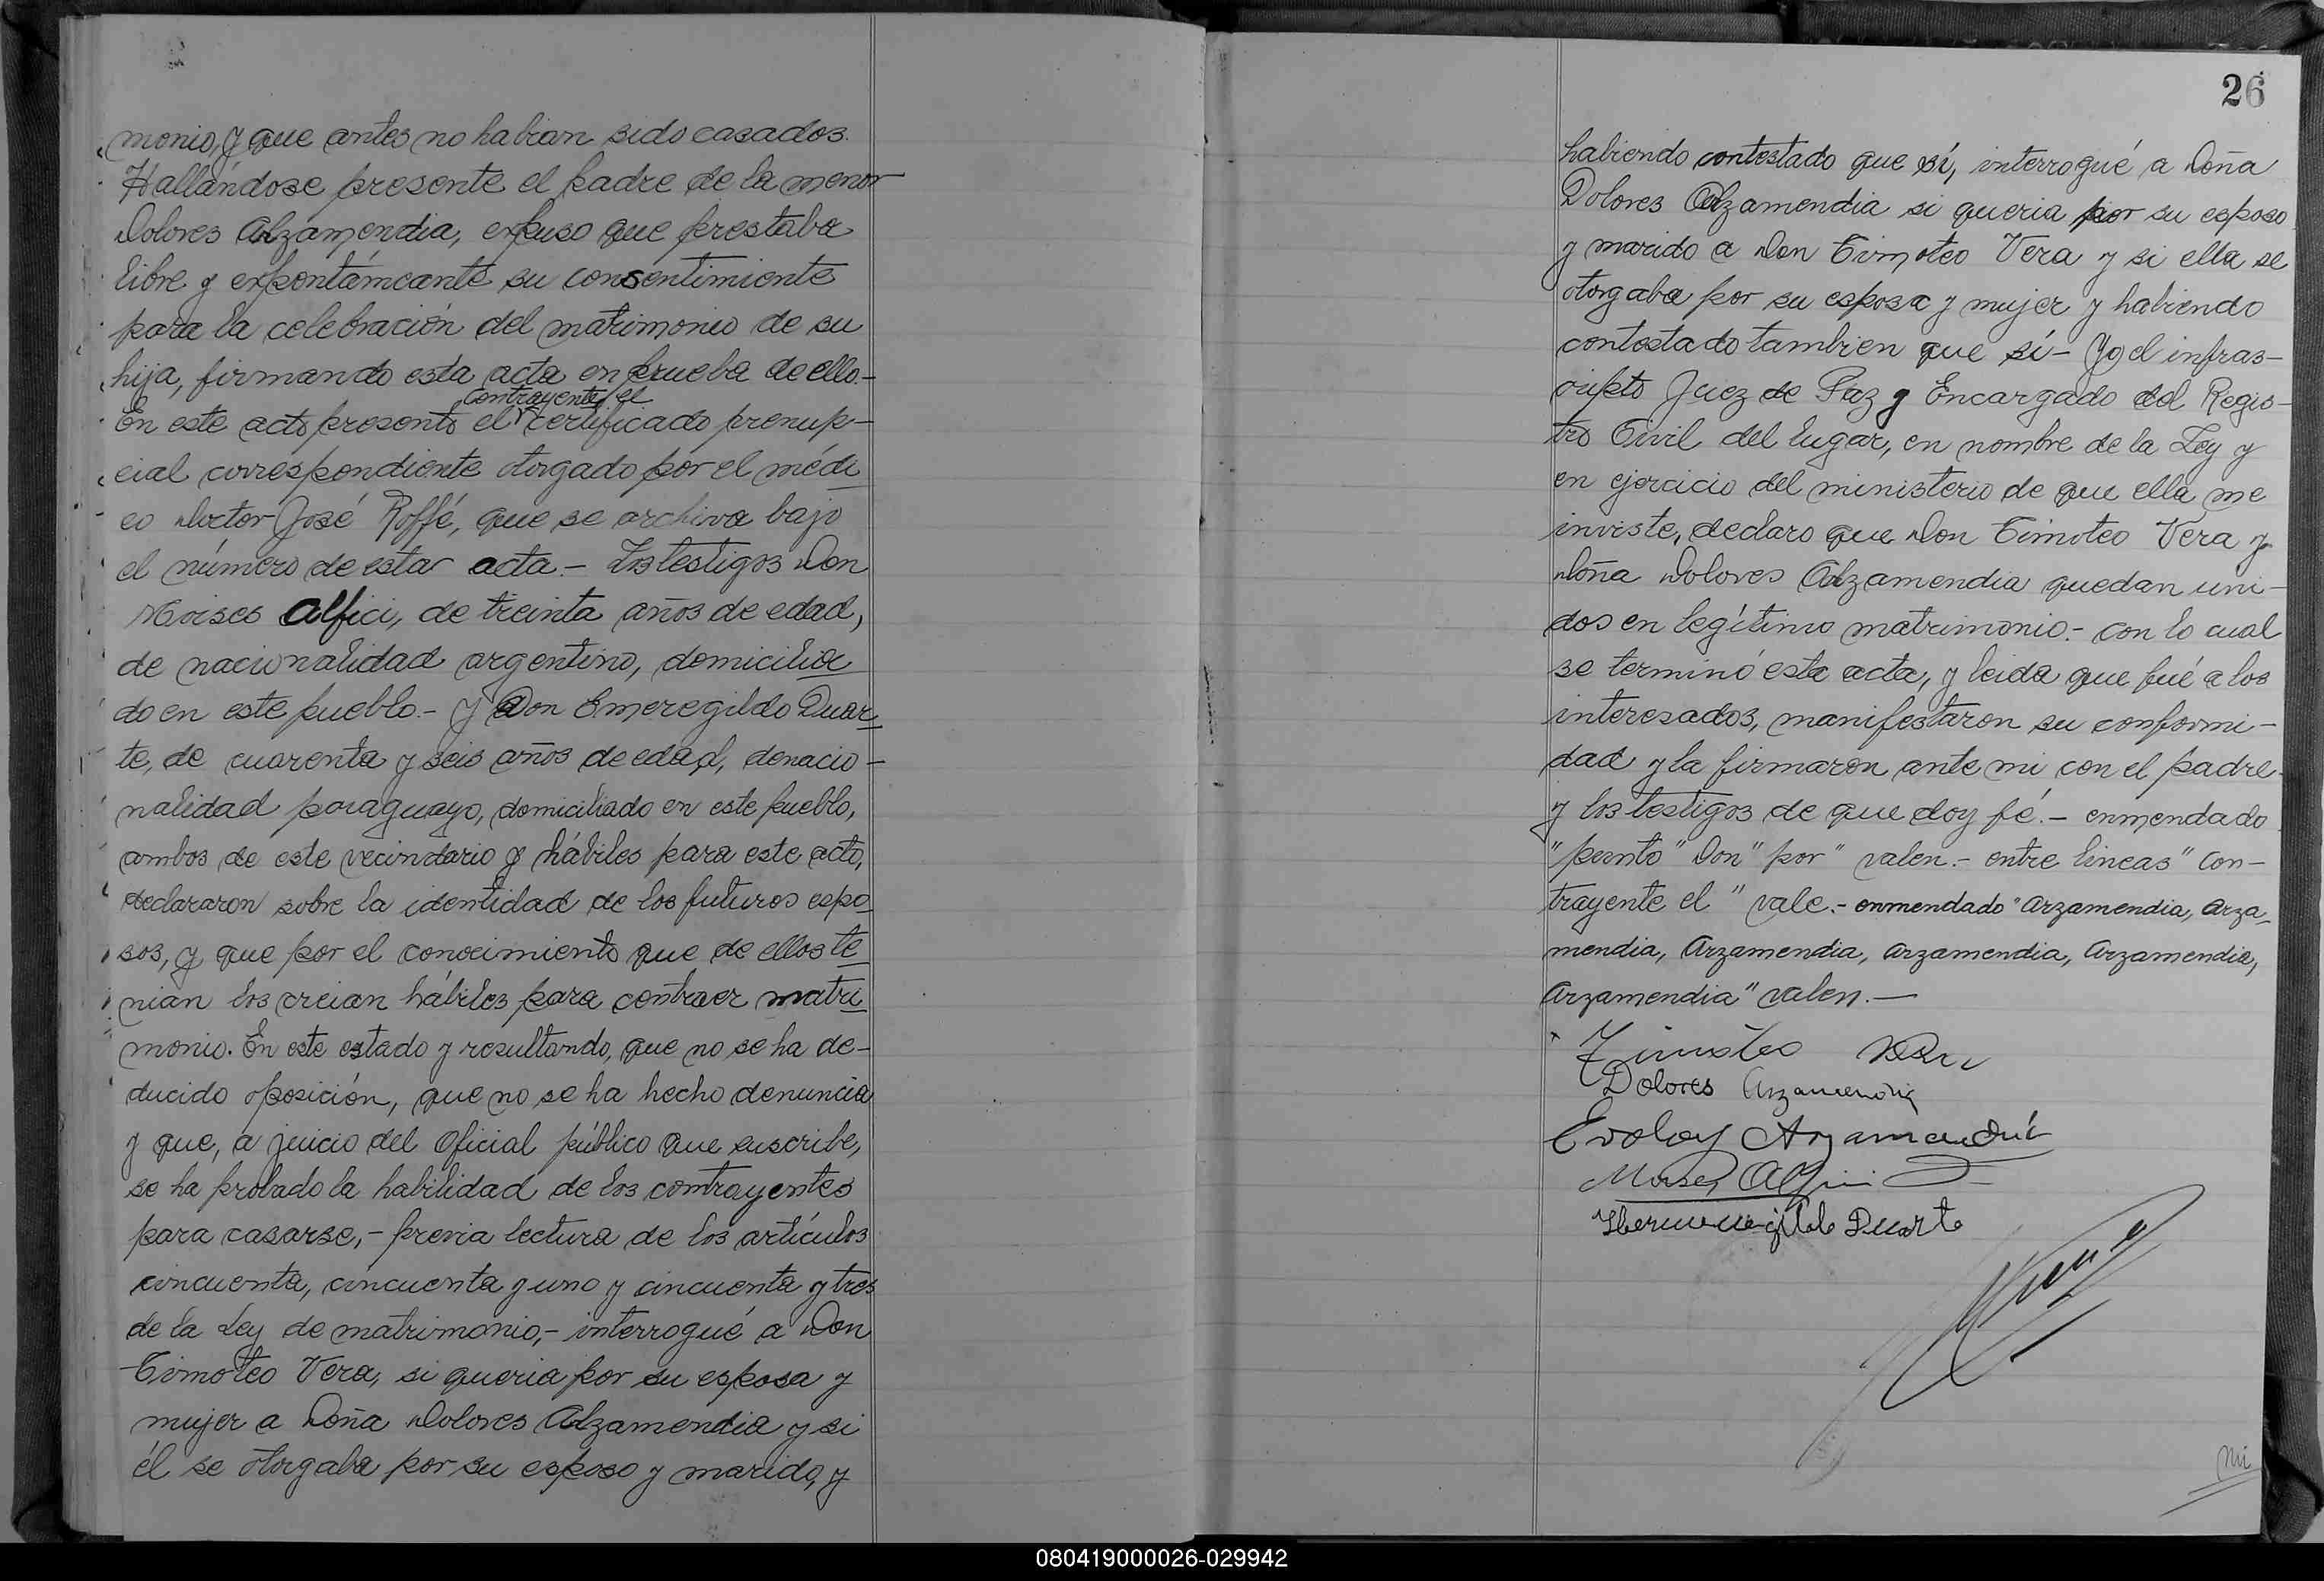 monio, y que antes no habian sido casados.
Hallándose presente el padre de la menor
Dolores Alzamendia, expuso que prestaba
libre y expontámeante su consentimiente
para la celebración del matrimonio de su
hija, firmando esta acta en prueba de ello.-
contrayente el
En este acto presento el certificado prenup-
cial correspondiente otorgado por el médi
co Doctor José Roffé, que se archiva bajo
el número de estar acta.- Los testigos Don
Moises Alfici, de treinta años de edad,
de nacionalidad argentino, domicilia
do en este pueblo.- Y Don Emeregildo Duar
te, de cuarenta y seis años de edad, de nacio-
nalidad paraguayo, domiciliado en este pueblo,
ambos de este vecindario y hábiles para este acto,
declararon sobre la identidad de los futuros espo
sos, y que por el conocimiento que de ellos te
nian los creian hábiles para contraer matri
monio. En este estado y resultando, que no se ha de-
ducido oposición, que no se ha hecho denuncia
y que, a juicio del Oficial público que suscribe,
se ha probado la habilidad de los contrayentes
para casarse,- previa lectura de los artículos
cincuenta, cincuenta y uno y cincuenta y tres
de la Ley de matrimonio,- interrogué a Don
Timoteo Vera, si queria por su esposa y
mujer a Doña Dolores Alzamendia y si
él se otorgaba por su esposo y marido, y
26
habiendo contestado que sí, interrogué a Doña
Dolores Alzamendia si queria por su esposo
y marido a Don Timoteo Vera y si ella se
otorgaba por su esposa y mujer y habiendo
contestado tambien que sí- Yo el infras-
cripto Juez de Paz y Encargado del Regis-
tro Civil del lugar, en nombre de la Ley y
en ejercicio del ministerio de que ella me
inviste, declaro que Don Timoteo Vera y
Doña Dolores Alzamendia quedan uni-
dos en legítimo matrimonio.- con lo cual
se terminó esta acta, y leida que fué a los
interesados, manifestaron su conformi-
dad y la firmaron ante mi con el padre
y los testigos de que doy fé.- enmendado
"punto" Don" por" valen.- entre lineas" con-
trayente el" vale.- enmendado "Arzamendia, Arza-
mendia, Arzamendia, Arzamendia, Arzamendia,
Arzamendia" valen.-
Timoteo Vera
Dolores Arzamendia
Arzamendia
Moises Alfici
Hermenegildo Duarte
080419000026-029942